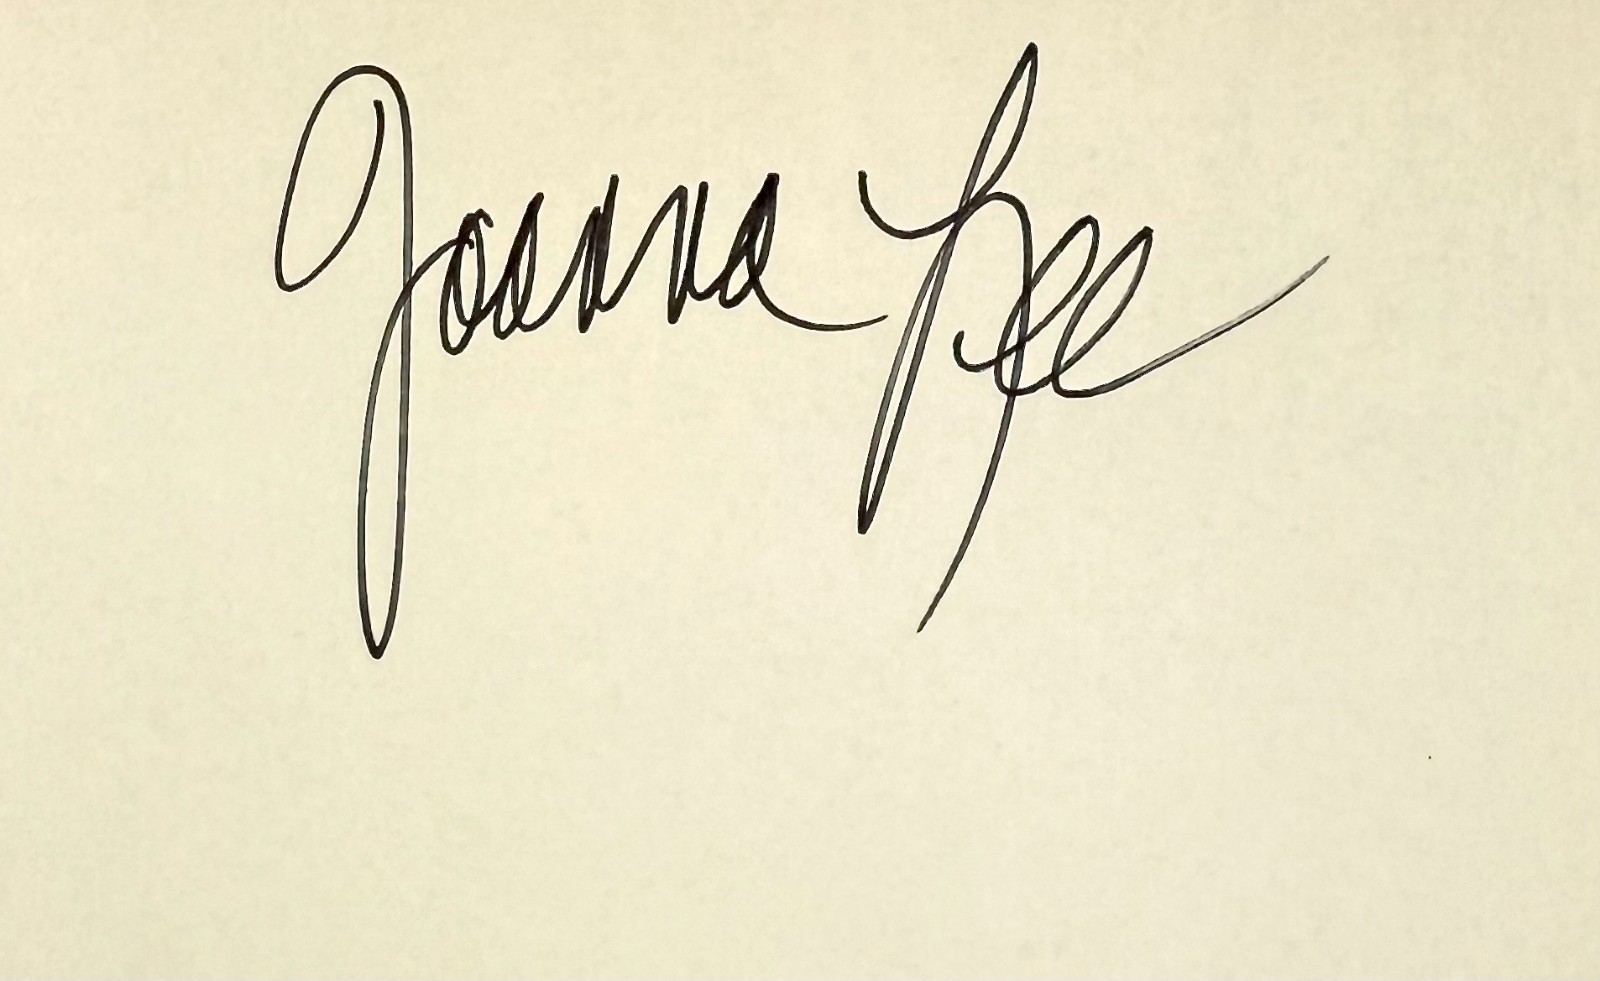 Joanna Lee